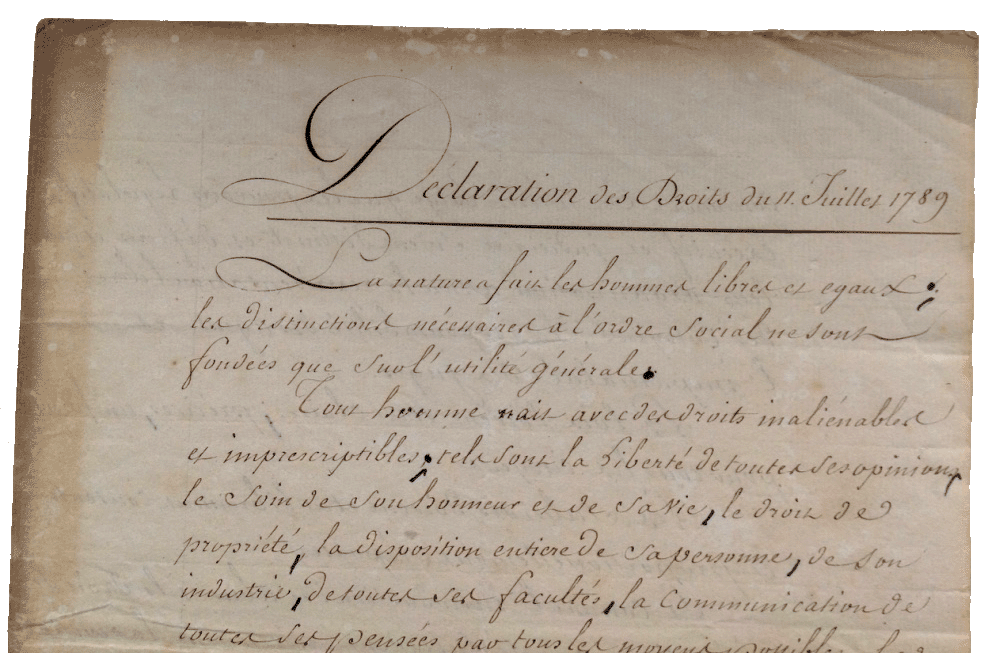 Déclaration des Droits du 11. Juillet 1789
La nature a fait les hommes libres et egaux ;
les distinctions nécessaires à l'ordre Social ne sont
fondées que sur l'utilité générale.
Tout homme nait avec des droits inaliénables
et imprescriptibles ; tels sont la liberté de toutes ses opinions,
le soin de son honneur et de sa vie, le droit de
propriété, la disposition entiere de sa personne, de son
industrie, de toutes ses facultés, la communication de
toutes ses pensées par tous les moyens possibles, la